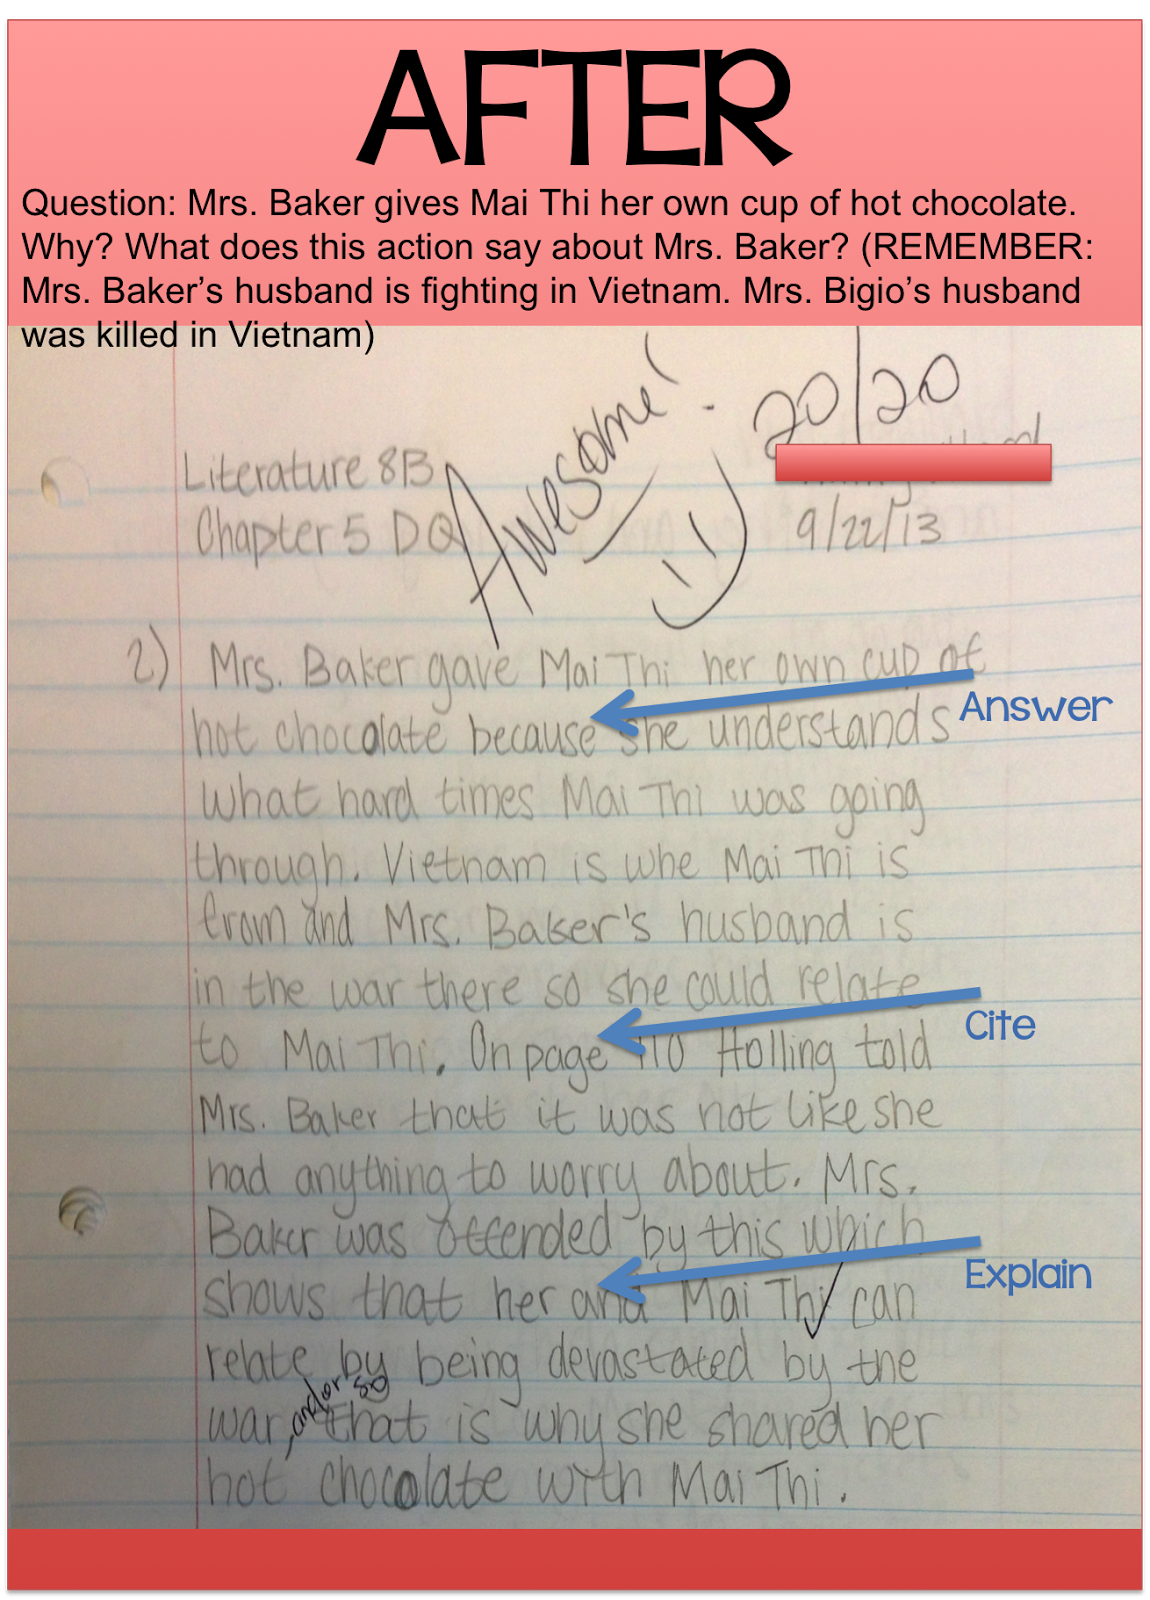 AFTER
Question: Mrs. Baker gives Mai Thi her own cup of hot chocolate.
Why? What does this action say about Mrs. Baker? (REMEMBER:
Mrs. Baker’s husband is fighting in Vietnam. Mrs. Bigio’s husband
was killed in Vietnam)
Awesome!
20/20
Literature 8B
Chapter 5 DQ
9/22/13
2) Mrs. Baker gave Mai Thi her own cup of
Answer
hot chocolate because she understands
what hard times Mai Thi was going
through. Vietnam is whe Mai Thi is
from and Mrs. Baker's husband is
in the war there so she could relate
Cite
to Mai Thi. On page 110 Holling told
Mrs. Baker that it was not like she
had anything to worry about. Mrs.
Baker was offended by this which
Explain
shows that her and Mai Thi can
relate by being devastated by the
and/or so
war, that is why she shared her
hot chocolate with Mai Thi.